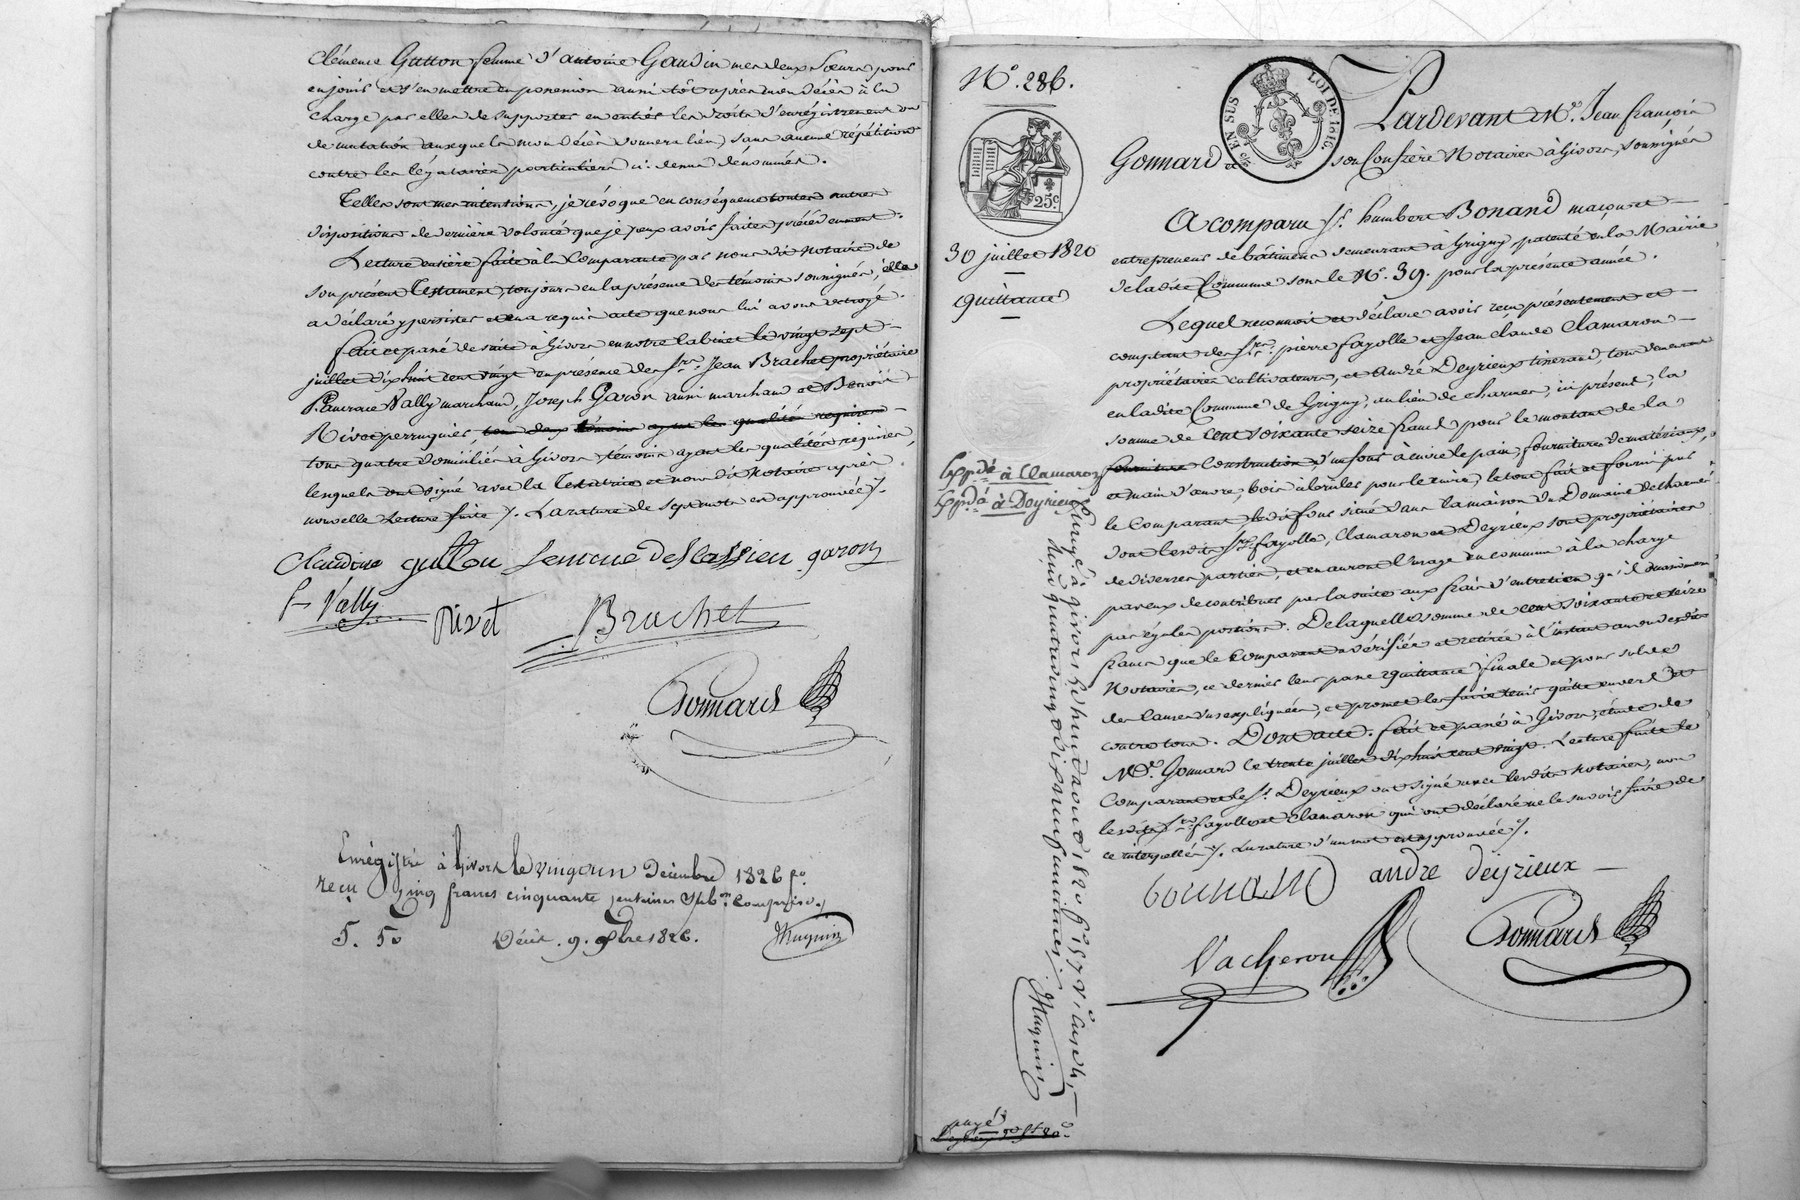 Clémence Gutton femme d'antoine Gaudin mes deux sœurs pour
en jouir et s'en mettre en possession aussi tôt après mon décès à la
charge par elles de supporter en entier les droits d'enrégistrement ou
de mutation auxquels mon décès donnera lieu, sans aucune répétition
contre les légataires particuliers ci-dessus dénommés.
Telles sont mes intentions, je révoque en conséquence toutes autres
dispositions de dernière volonté que je peux avoir faites précédemment.
Lecture entière faite à la Comparante par nous dit Notaire de
son présent Testament, toujours en la présence des témoins soussignés, elle
a déclaré y persister et en a requis acte que nous lui avons octroyé.
fait et passé de suite à Givors en notre Cabinet le vingt sept
juillet dix huit cent vingt en présence des Srs. Jean Brachet propriétaire
Pancrace Vally marchand, Joseph Garon aussi marchand et Benoît
Rivet perruquier,
tous quatre domiciliés à Givors, témoins ayant les qualités requises,
lesquels ont signé avec la Testatrice et nous dit Notaire après
nouvelle Lecture faite /. La rature de sept mots est approuvée /.
Claudine gutton femme deslassieu garon
P Vally
Rivet
Brachet
Gonnard
Enrégistré à Givors le vingt un Décembre 1826 fo
reçu cinq francs cinquante centimes Subon. Comprise.
5. 50 Décès. 9. 9bre 1826. Maguin
N°. 286.
EN SUS
LOI DE 1816.
25c
30 juillet 1820
quittance
Pardevant Me. Jean françois
Gonnard et son Confrère Notaires à Givors, soussignés
A comparu Sr. humbert Bonand maçon et
entrepreneur de bâtimens demeurant à Grigny, patenté en la Mairie
de ladite Commune sous le N°. 39. pour la présente année.
Lequel reconnoit et déclare avoir reçu présentement et
comptant des Srs. pierre fayolle et Jean claude Clamaron
propriétaires cultivateurs, et André Deyrieux tisserand, tous demeurant
en ladite Commune de Grigny, au lieu de charnes, ici présent, la
somme de Cent soixante seize francs pour le montant de la
Construction d'un four à cuire le pain, fournitures de matériaux,
et main d'œuvre, bois pour le cuire, le tout fait et fourni par
le Comparant, ledit four situé dans la maison du Domaine de charnes
dont lesdits Srs. fayolle, Clamaron et Deyrieux sont propriétaires
de diverses parties, et en auront l'usage en commun à la charge
par eux de contribuer par la suite aux frais d'entretien
par égales portions. De laquelle somme de cent soixante et seize
francs que le Comparant a vérifiée et retirée à l'instant au vu desdits
Notaires, ce dernier leur passe quittance finale et pour solde
des causes sus expliquées, et promet les faire tenir quitte envers et
contre tous. Dont acte. fait et passé à Givors, étude de
Me. Gonnard le trente juillet dix huit cent vingt. Lecture faite le
Comparant et le Sr. Deyrieux ont signé avec lesdits Notaires, non
lesdits Srs fayolle et Clamaron qui ont déclaré ne le savoir faire de
ce interpellés /. La rature d'un mot est approuvée /.
bonand andre deyrieux
Vacheron
Gonnard
Expdé. à Clamaron
Expdé. à Deyrieux
Enregé. à givors le huit aout 1820 fo 157
Maguin
payé